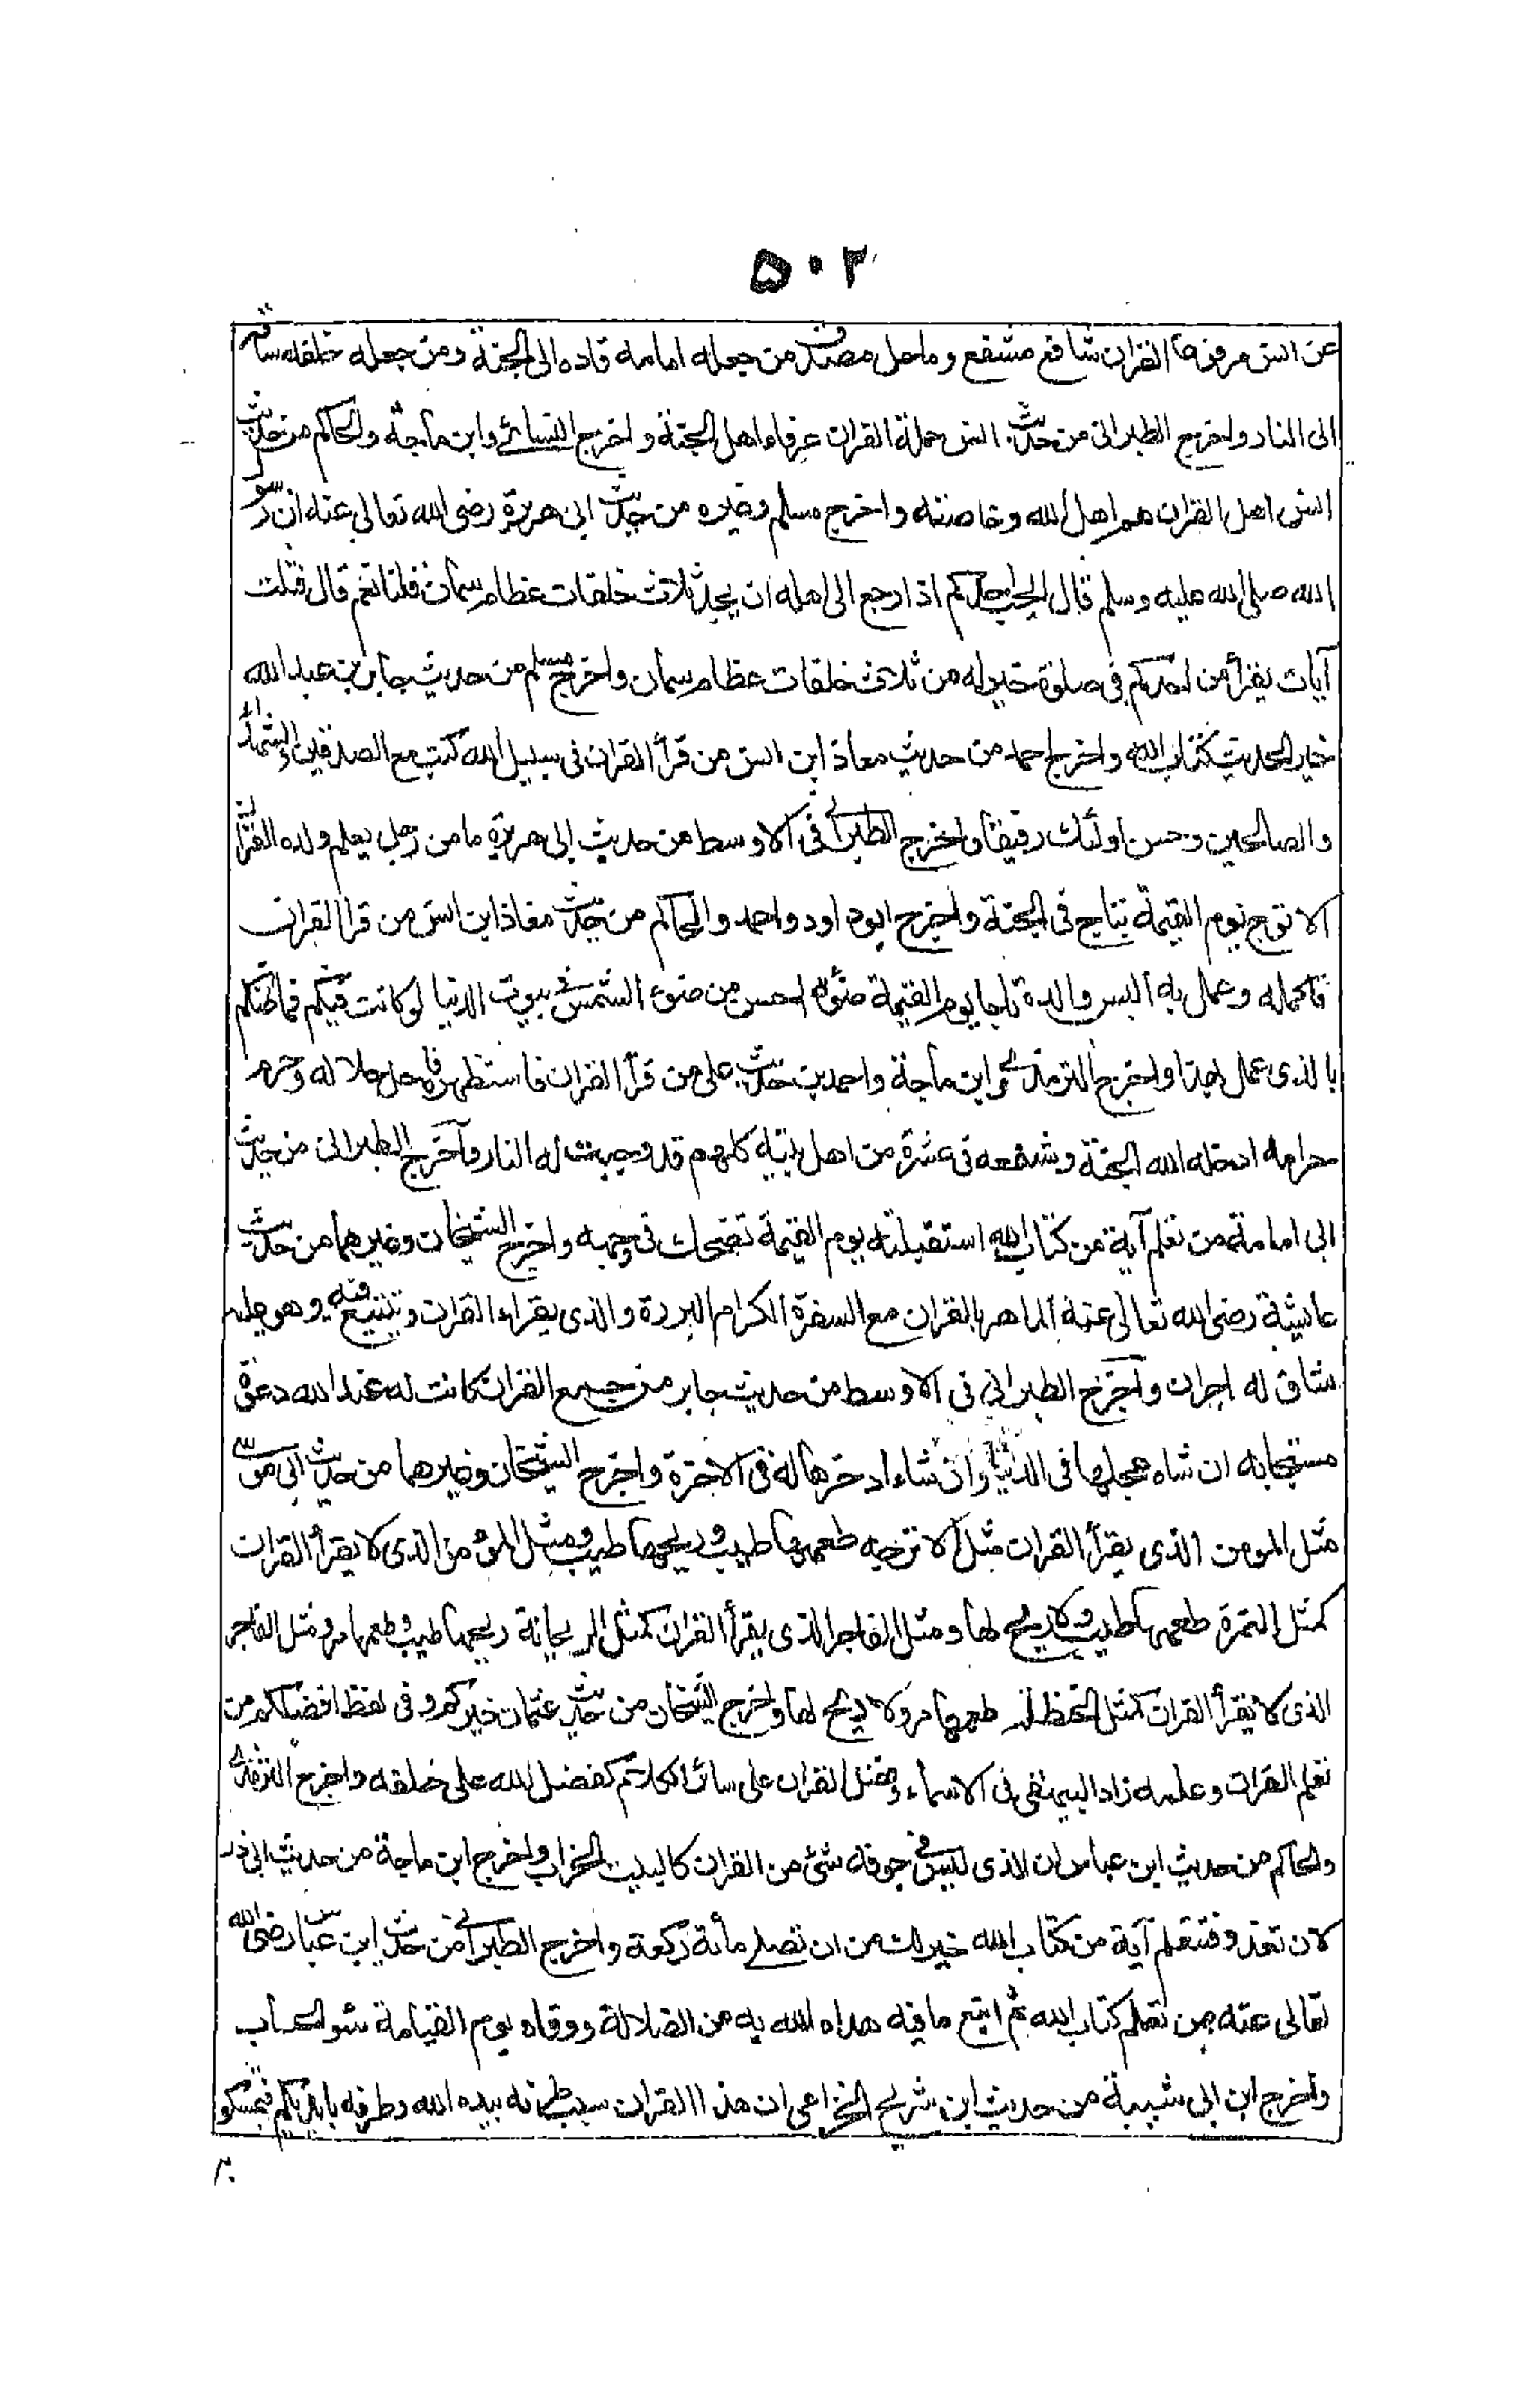 ٥٠٢
عن انس مرفوعا القران شافع مشفع وماحل مصدق من جعله امامه قاده الى الجنة ومن جعله خلفه ساقه
الى النار واخرج الطبرانى من حديث انس حملة القران عرفاء اهل الجنة واخرج النسائى وابن ماجة والحاكم من حديث
انس اهل القران هم اهل الله وخاصته واخرج مسلم وغيره من حديث ابى هريرة رضى الله تعالى عنه ان رسو
الله صلى الله عليه وسلم قال ايحب احدكم اذا رجع الى اهله ان يجد ثلاث خلقات عظام سمان قلنا نعم قال فثلث
آيات يقرأ من احدكم فى صلوة خير له من ثلاث خلقات عظام سمان واخرج مسلم من حديث جابر بن عبد الله
خير الحديث كتاب الله واخرج احمد من حديث معاذ ابن انس من قرأ القران فى سبيل الله كتب مع الصديقين والشهداء
والصالحين وحسن اولئك رفيقا واخرج الطبرانى فى الاوسط من حديث ابى هريرة ما من رجل يعلم ولده القران
الا توج يوم القيمة بتاج فى الجنة واخرج ابوداود واحمد والحاكم من حديث معاذ ابن انس من قرا القران
فاكمله وعمل به البس والده تاجا يوم القيمة ضوئه احسن من ضوء الشمس فى بيوت الدنيا لو كانت فيكم فما ظنكم
بالذى عمل بهذا واخرج الترمذى وابن ماجة واحمد من حديث على من قرأ القران فاستظهره فاحل حلاله وحرم
حرامه ادخله الله الجنة وشفعه فى عشرة من اهل بيته كلهم قد وجبت له النار وآخرج الطبرانى من حديث
ابى امامة من تعلم آية من كتاب الله استقبلته يوم القيمة تضحك فى وجهه واخرج الشيخان وغيرهما من حديث
عايشة رضى الله تعالى عنه الماهر بالقران مع السفرة الكرام البررة والذى يقراء القران ويتتعتع فيه وهو عليه
شاق له اجران وآخرج الطبرانى فى الاوسط من حديث جابر من جمع القران كانت له عند الله دعوة
مستجابه ان شاء عجلها فى الدنيا وان شاء ادخرها له فى الاخرة واخرج الشيخان وغيرهما من حديث ابى موسى
مثل المومن الذى يقرأ القران مثل الاترجه طعمها طيب وريحها طيب ومثل المؤمن الذى لا يقرأ القران
كمثل التمرة طعمها طيب ولا ريح لها ومثل الفاجر الذى يقرأ القران كمثل الريحانة ريحها طيب وطعمها مر ومثل الفاجر
الذى لا يقرأ القران كمثل الحنظلة طعمها مر ولا ريح لها واخرج الشيخان من حديث عثمان خيركم وفى لفظ افضلكم من
تعلم القران وعلمه زاد البيهقى فى الاسماء وفضل القران على سائر الكلام كفضل الله على خلقه واخرج الترمذى
والحاكم من حديث ابن عباس ان الذى ليس فى جوفه شئ من القران كالبيت الخراب واخرج ابن ماجة من حديث ابى ذر
لان تغذو فتتعلم آية من كتاب الله خير لك من ان تصلى مائة ركعة واخرج الطبرانى من حديث ابن عباس رضى الله
تعالى عنه من تعلم كتاب الله ثم اتبع ما فيه هداه الله به من الضلالة ووقاه يوم القيامة سوء الحساب
واخرج ابن ابى شيبة من حديث ابن شريح الخزاعى ان هذا القران سبب طرفه بيده الله وطرفه بايديكم فتمسكو